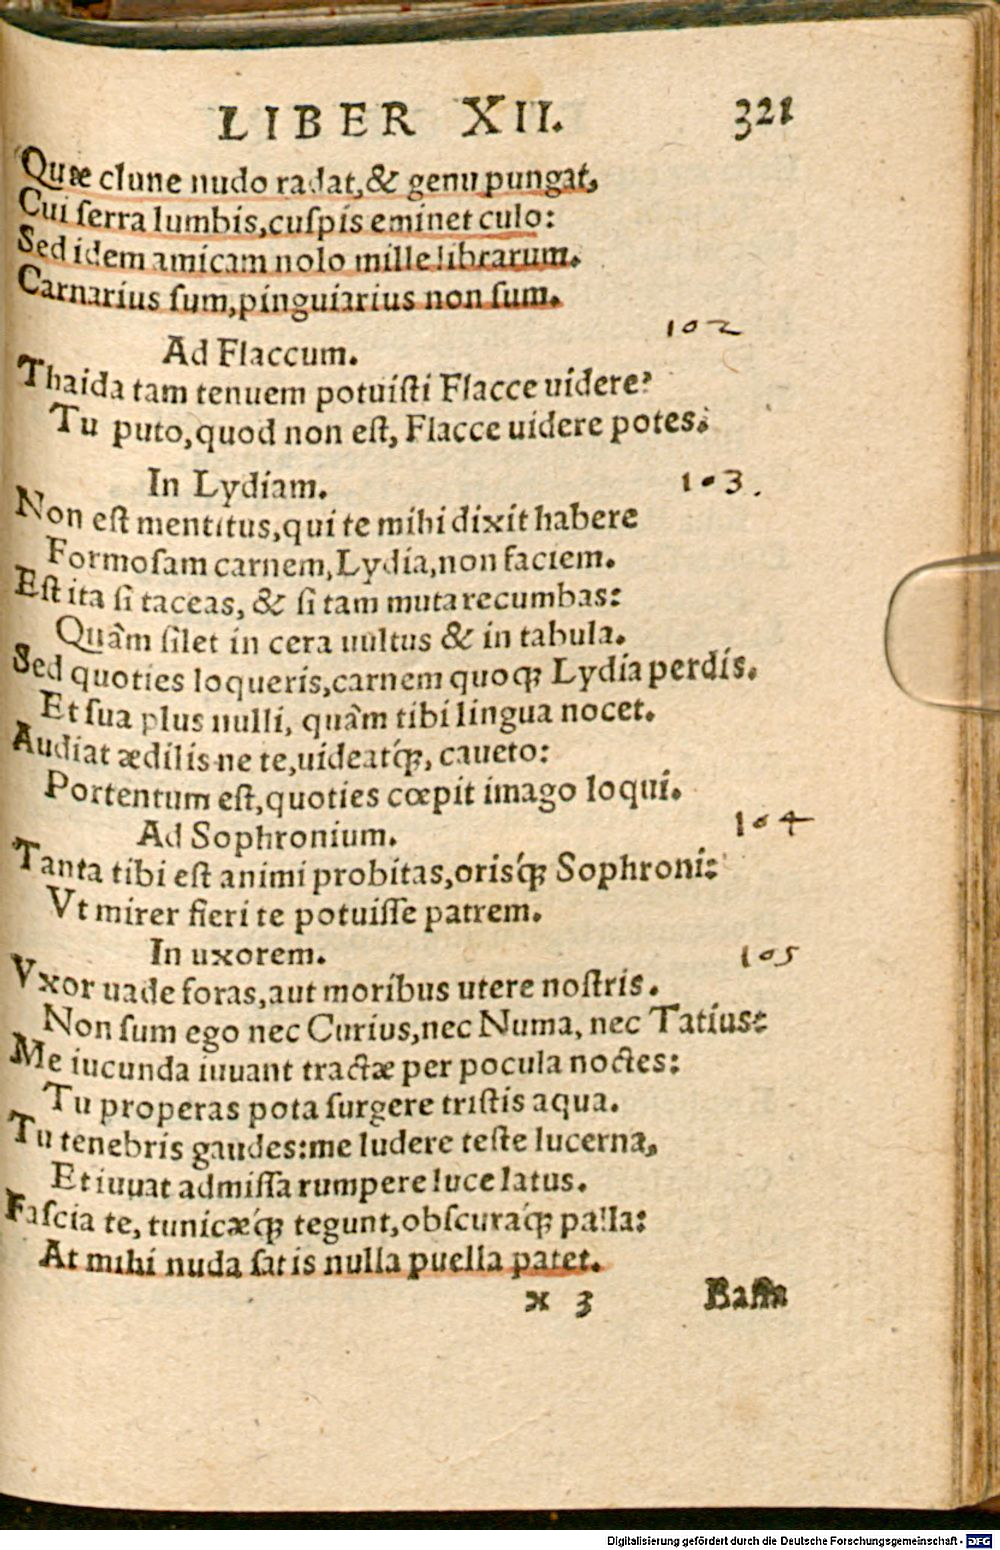 LIBER XII. 321
Quæ clune nudo radat,& genu pungat,
Cui ſerra lumbis,cuſpis eminet culo:
Sed idem amicam nolo mille librarum.
Carnarius ſum,pinguiarius non ſum.
Ad Flaccum. 102
Thaida tam tenuem potuiſti Flacce uidere?
Tu puto,quod non eſt, Flacce uidere potes.
In Lydiam. 103.
Non eſt mentitus,qui te mihi dixit habere
Formoſam carnem,Lydia,non faciem.
Eſt ita ſi taceas, & ſi tam muta recumbas:
Quàm ſilet in cera uultus & in tabula.
Sed quoties loqueris,carnem quoqꝫ Lydia perdis.
Et ſua plus nulli, quàm tibi lingua nocet.
Audiat ædilis ne te,uideat́qꝫ, caueto:
Portentum eſt,quoties cœpit imago loqui.
Ad Sophronium. 104
Tanta tibi eſt animi probitas,oriś qꝫ Sophroni:
Vt mirer fieri te potuiſſe patrem.
In uxorem. 105
Vxor uade foras,aut moribus utere noſtris.
Non ſum ego nec Curius,nec Numa, nec Tatius:
Me iucunda iuuant tractæ per pocula noctes:
Tu properas pota ſurgere triſtis aqua.
Tu tenebris gaudes:me ludere teſte lucerna,
Et iuuat admiſſa rumpere luce latus.
Faſcia te, tunicǽqꝫ tegunt,obſcurá qꝫ palla:
At mihi nuda ſatis nulla puella patet.
x 3 Baſſa
Digitalisierung gefördert durch die Deutsche Forschungsgemeinschaft - DFG